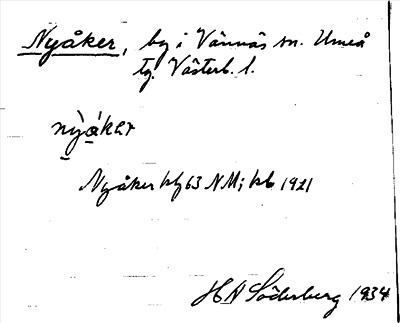 Nyåker, by i Vännäs sn. Umeå
tg. Västerb. l.
nỳákɛr
Nyåker kbg 63 NM; kb 1921
H A Söderberg 1934